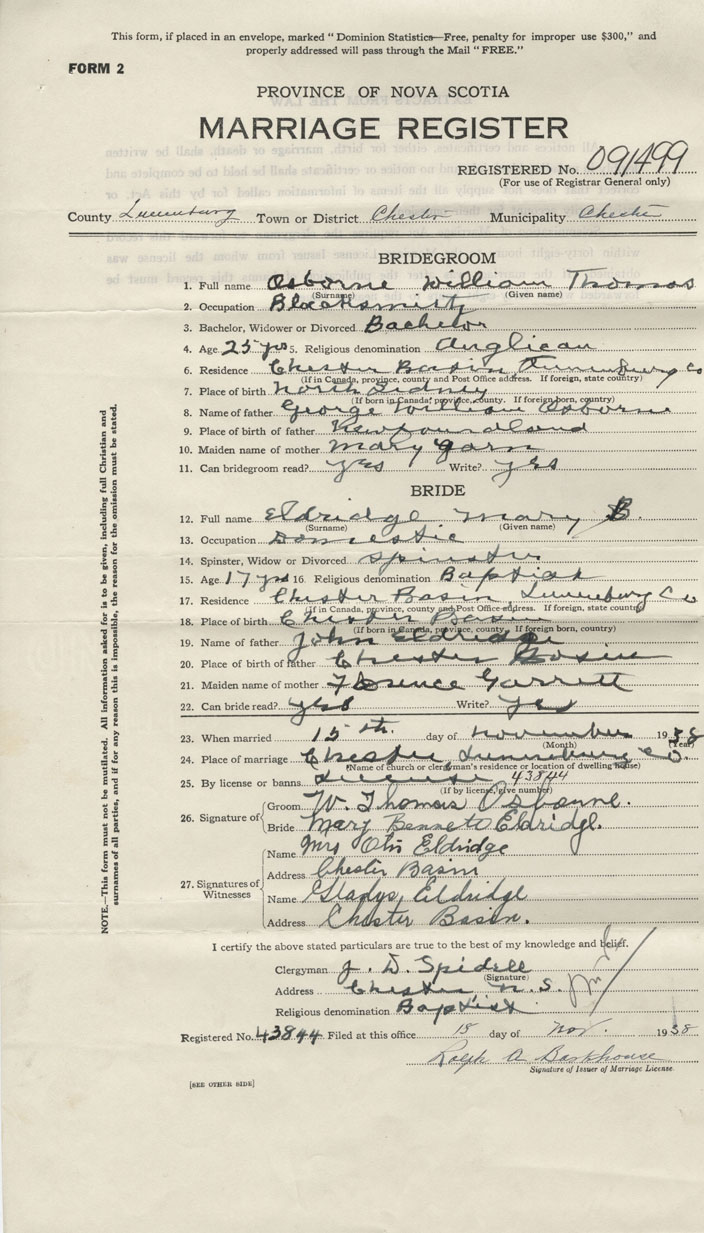 This form, if placed in an envelope, marked "Dominion Statistics—Free, penalty for improper use $300," and
properly addressed will pass through the Mail "FREE."
FORM 2
PROVINCE OF NOVA SCOTIA
MARRIAGE REGISTER
REGISTERED No. 091499
(For use of Registrar General only)
County Lunenburg Town or District Chester Municipality Chester
BRIDEGROOM
1. Full name Osborne William Thomas
(Surname) (Given name)
2. Occupation Blacksmith
3. Bachelor, Widower or Divorced Bachelor
4. Age 25 yrs 5. Religious denomination Anglican
6. Residence Chester Basin Lunenburg Co
(If in Canada, province, county and Post Office address. If foreign, state country)
7. Place of birth North Sidney
(If born in Canada, province, county. If foreign born, country)
8. Name of father George William Osborne
9. Place of birth of father Newfoundland
10. Maiden name of mother Mary
11. Can bridegroom read? Yes Write? Yes
BRIDE
12. Full name Eldridge Mary B.
(Surname) (Given name)
13. Occupation Domestic
14. Spinster, Widow or Divorced Spinster
15. Age 17 yrs 16. Religious denomination Baptist
17. Residence Chester Basin, Lunenburg Co
(If in Canada, province, county and Post Office address. If foreign, state country)
18. Place of birth Chester Basin
(If born in Canada, province, county. If foreign born, country)
19. Name of father John Eldridge
20. Place of birth of father Chester Basin
21. Maiden name of mother Florence Garrett
22. Can bride read? Yes Write? Yes
23. When married 15th. day of November 1938
(Month) (Year)
24. Place of marriage Chester Lunenburg Co.
(Name of church or clergyman's residence or location of dwelling house)
25. By license or banns License 43844
(If by license, give number)
26. Signature of
Groom W. Thomas Osborne.
Bride Mary Benneto Eldridge.
27. Signatures of Witnesses
Name Mrs Otis Eldridge
Address Chester Basin
Name Gladys Eldridge
Address Chester Basin.
I certify the above stated particulars are true to the best of my knowledge and belief.
Clergyman J. D. Spidell
(Signature)
Address Chester N.S.
Religious denomination Baptist
Registered No. 43844 Filed at this office 18 day of Nov. 1938
Ralph A Barkhouse
Signature of Issuer of Marriage License.
[SEE OTHER SIDE]
NOTE.—This form must not be mutilated. All information asked for is to be given, including full Christian and
surnames of all parties, and if for any reason this is impossible, the reason for the omission must be stated.